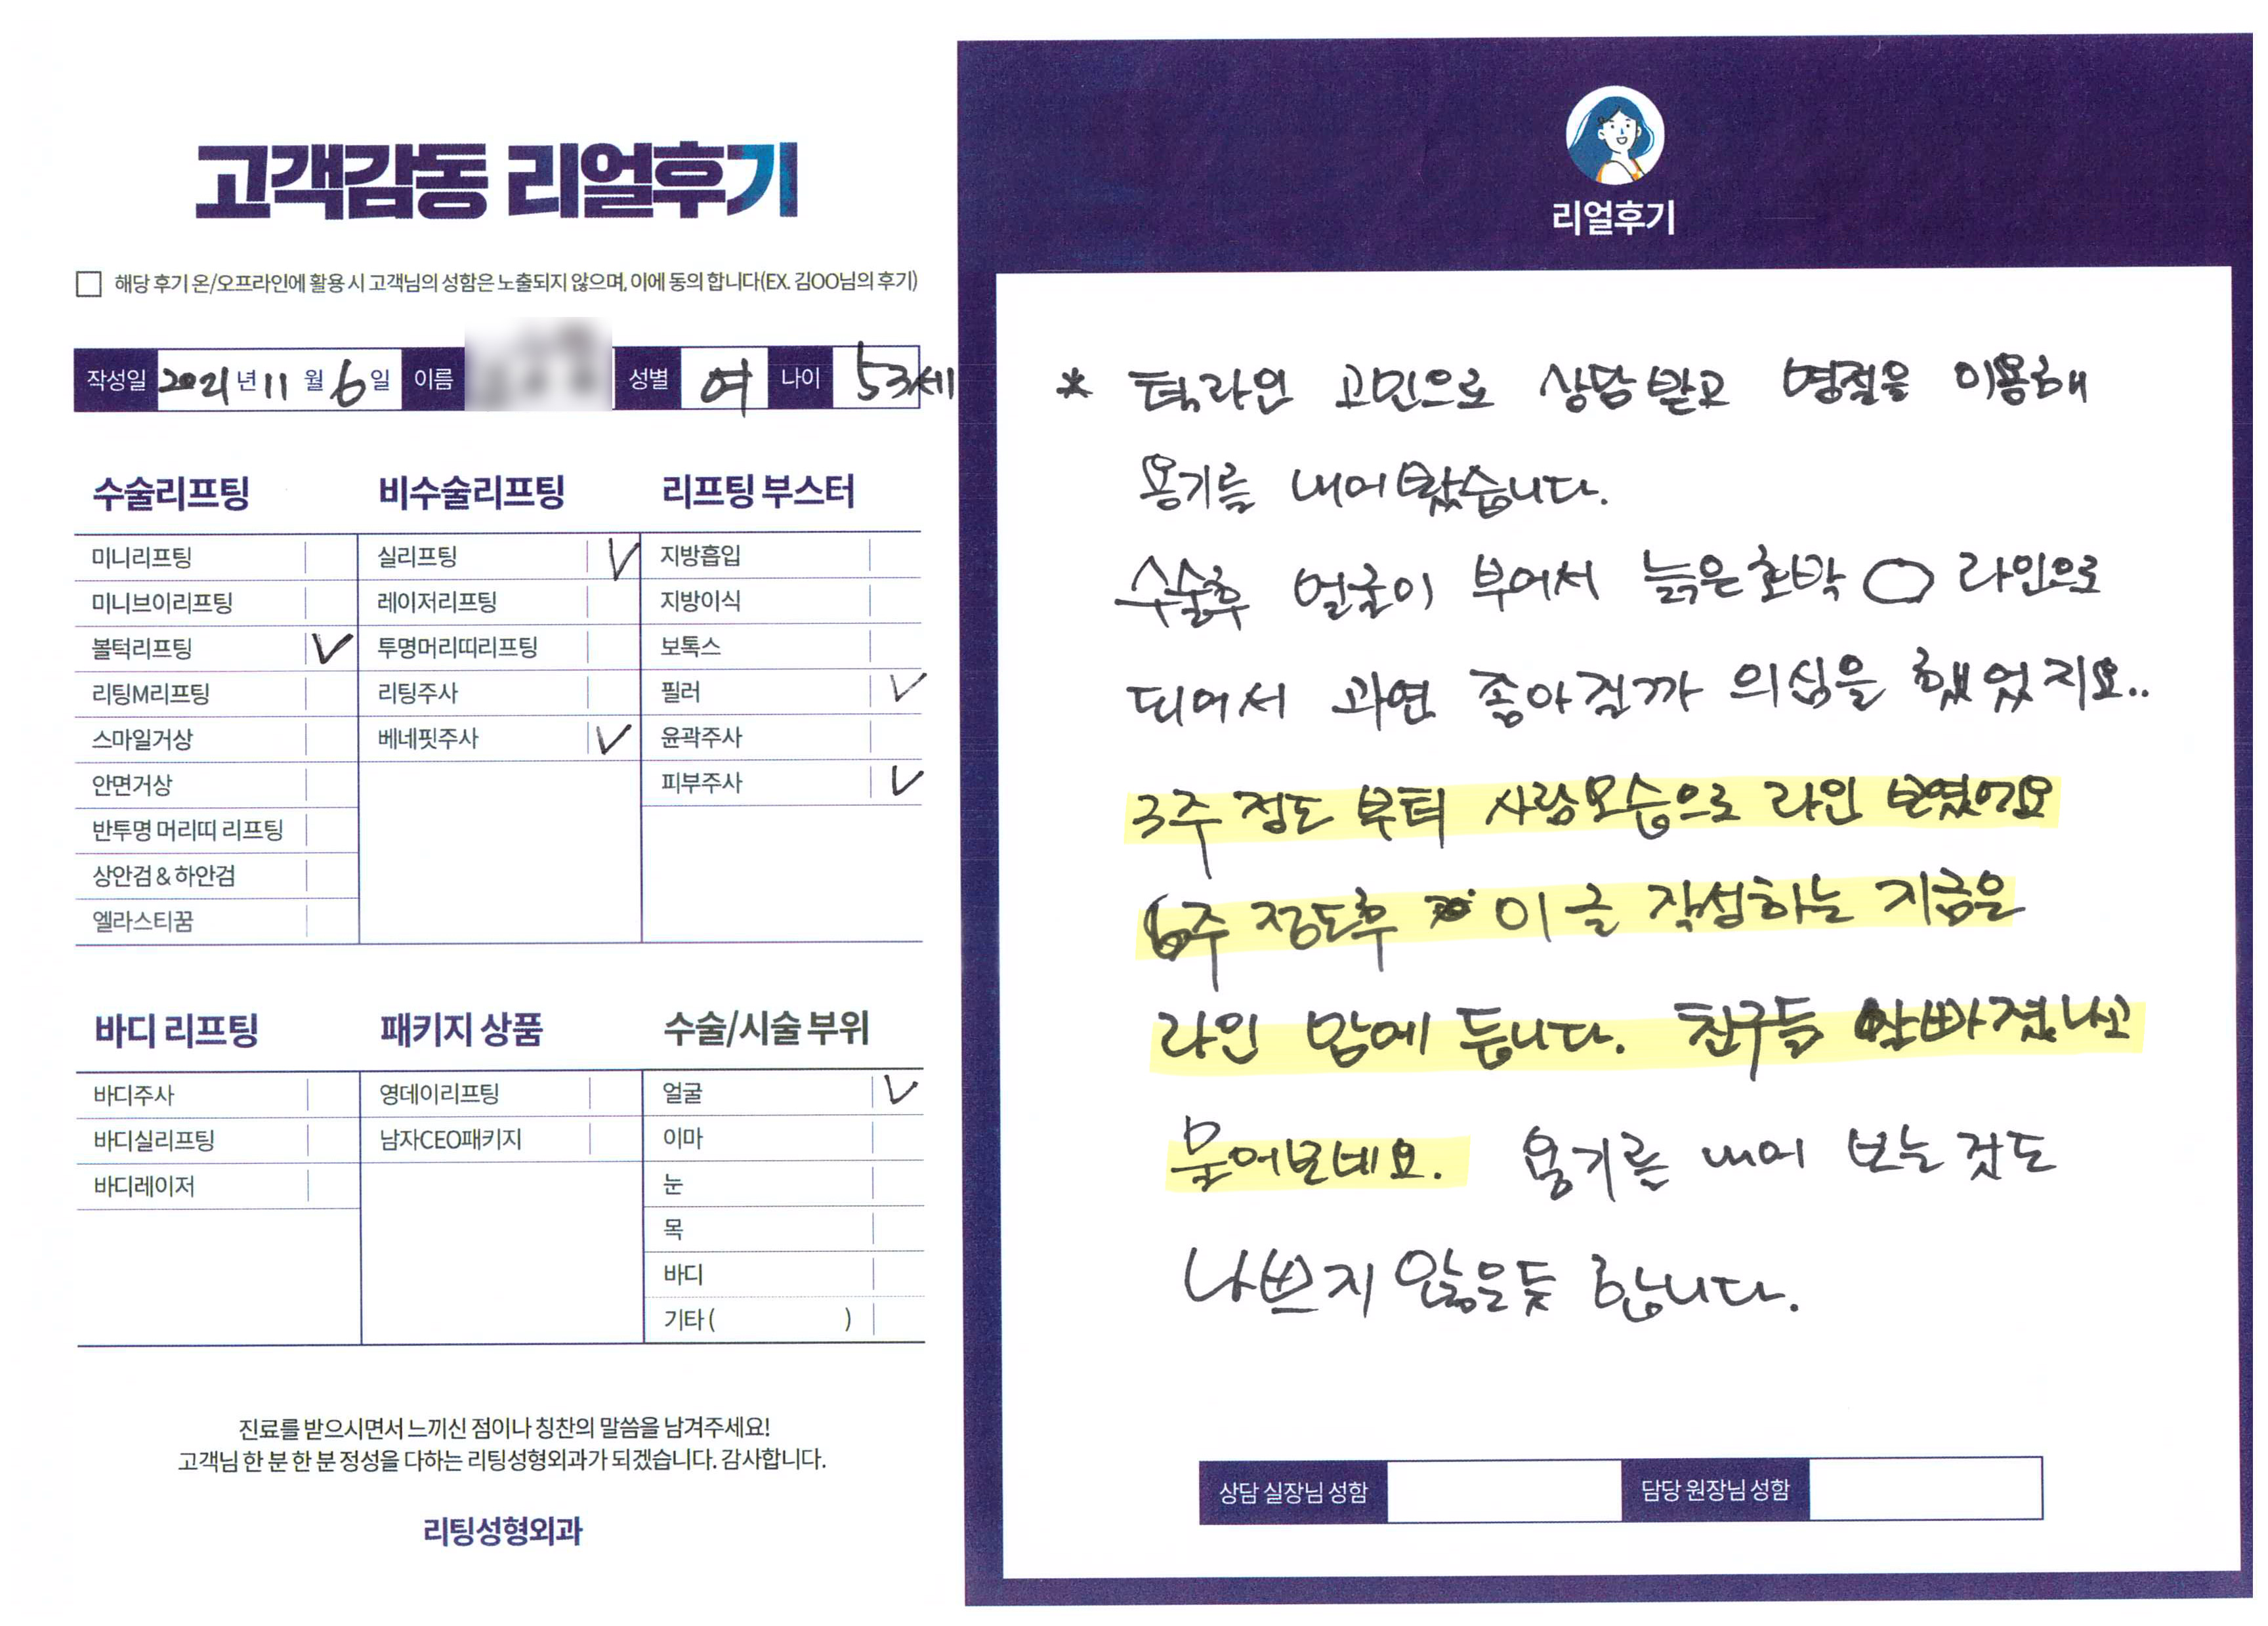 고객감동 리얼후기
해당 후기 온/오프라인에 활용 시 고객님의 성함은 노출되지 않으며, 이에 동의 합니다(EX. 김OO님의 후기)
작성일 2021 년 11 월 6 일 이름 성별 여 나이 53세
수술리프팅
미니리프팅
미니브이리프팅
볼턱리프팅 V
리팅M리프팅
스마일거상
안면거상
반투명 머리띠 리프팅
상안검 & 하안검
엘라스티꿈
비수술리프팅
실리프팅 V
레이저리프팅
투명머리띠리프팅
리팅주사
베네핏주사 V
리프팅 부스터
지방흡입
지방이식
보톡스
필러 V
윤곽주사
피부주사 V
바디 리프팅
바디주사
바디실리프팅
바디레이저
패키지 상품
영데이리프팅
남자CEO패키지
수술/시술 부위
얼굴 V
이마
눈
목
바디
기타 ( )
진료를 받으시면서 느끼신 점이나 칭찬의 말씀을 남겨주세요!
고객님 한 분 한 분 정성을 다하는 리팅성형외과가 되겠습니다. 감사합니다.
리팅성형외과
리얼후기
* 턱라인 고민으로 상담받고 명절을 이용해
용기를 내어봤습니다.
수술후 얼굴이 부어서 늙은호박 ○ 라인으로
되어서 과연 좋아질까 의심을 했었지요..
3주 정도 부터 사람모습으로 라인 보였어요
6주 정도후 이 글 작성하는 지금은
라인 맘에 듭니다. 친구들 살빠졌냐고
물어보네요. 용기를 내어 보는 것도
나쁘지 않은듯 합니다.
상담 실장님 성함
담당 원장님 성함